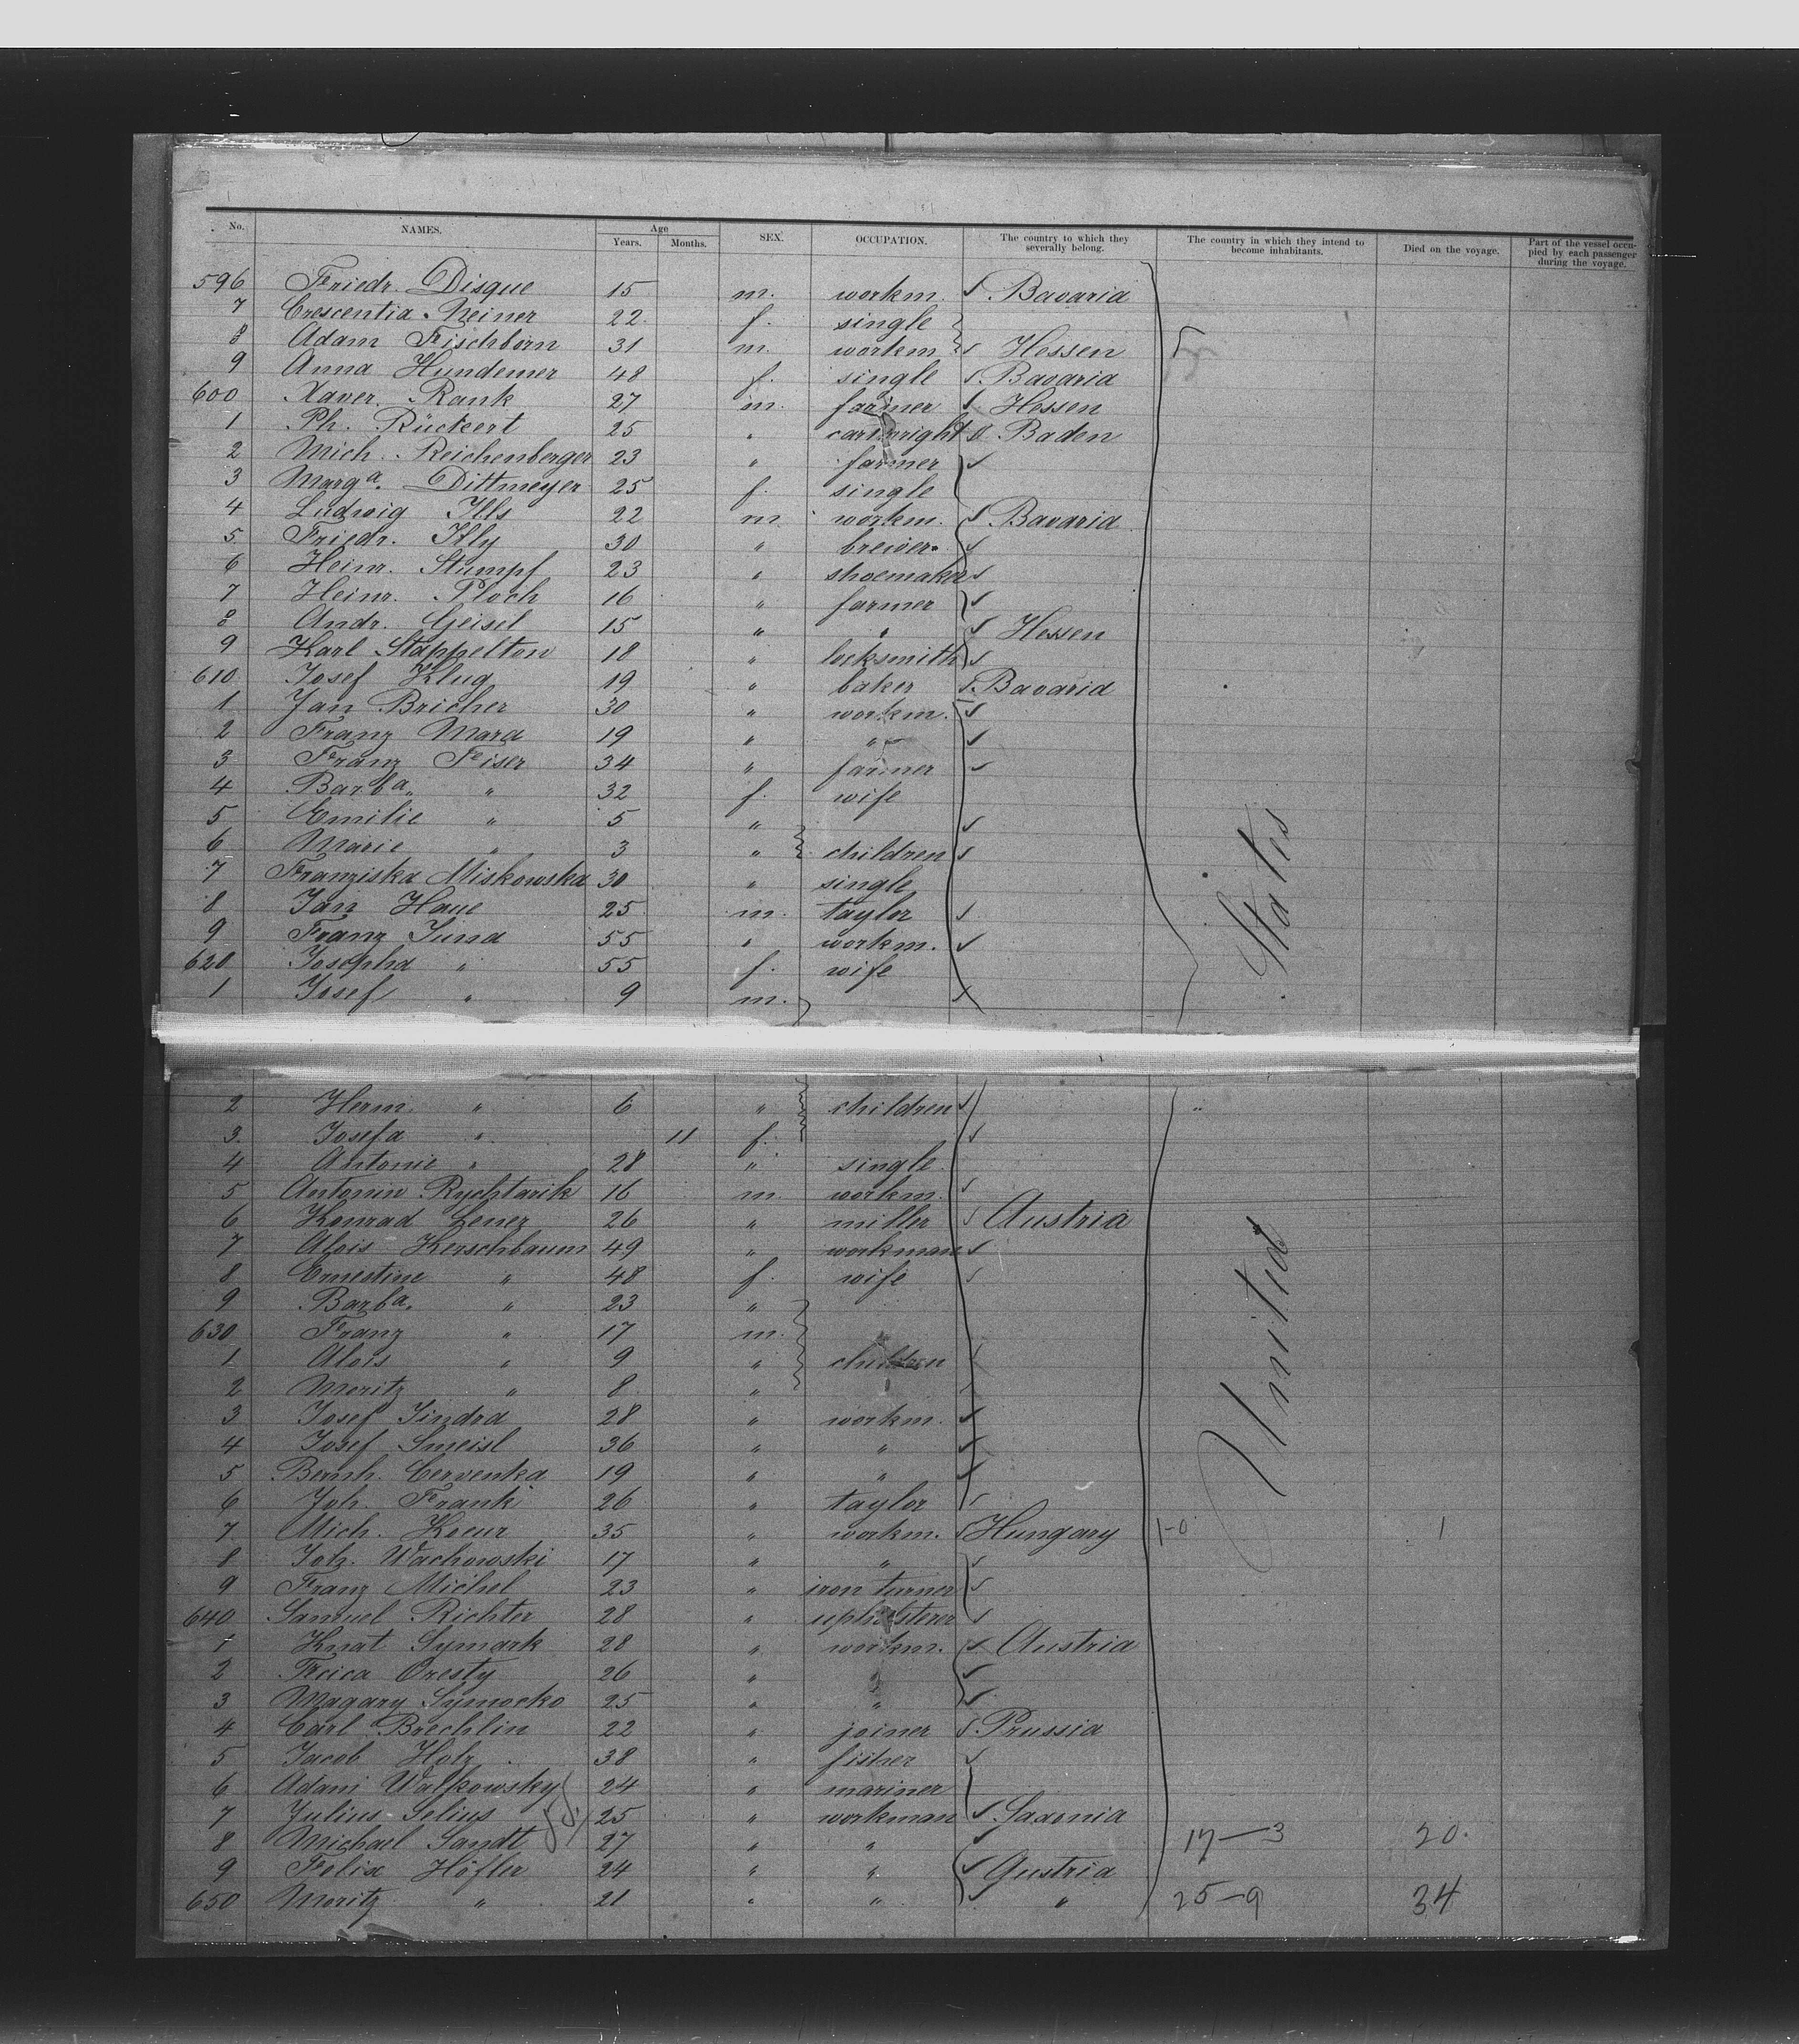 No. NAMES. Age Years. Months. SEX. OCCUPATION. The country to which they severally belong. The country in which they intend to become inhabitants. Died on the voyage. Part of the vessel occupied by each passenger during the voyage.
596 Friedr. Disque 15 m. workm. Bavaria
7 Crescentia Neiner 22 f. single
8 Adam Fischborn 31 m. workm. Hessen
9 Anna Hundemer 48 f. single Bavaria
600 Xaver. Rank 27 m. farmer Hessen
1 Ph. Rückert 25 " cartwright Baden
2 Mich. Reichenberger 23 " farmer
3 Marga. Dittmeyer 25 f. single
4 Ludwig Ills 22 m. workm. Bavaria
5 Friedr. Illy 30 " brewer
6 Heinr. Stumpf 23 " shoemaker
7 Heinr. Ploch 16 " farmer
8 Andr. Geisel 15 " " Hessen
9 Karl Stappelton 18 " locksmith
610 Josef Klug 19 " baker Bavaria
1 Jan Bricher 30 " workm.
2 Franz Mara 19 " "
3 Franz Fiser 34 " farmer
4 Barba. " 32 f. wife
5 Emilie " 5 "
6 Marie " 3 " children
7 Franziska Miskowska 30 " single
8 Jan Haue 25 m. taylor
9 Franz Juna 55 " workm.
620 Josepha " 55 f. wife
1 Josef " 9 m.
2 Herm. " 6 " children
3 Josefa " 11 f.
4 Antonie " 28 " single
5 Antonin Rychtarik 16 m. workm.
6 Konrad Lener 26 " miller Austria
7 Alois Kerschbaum 49 " workman
8 Ernestine " 48 f. wife
9 Barba. " 23 "
630 Franz " 17 m.
1 Alois " 9 " children
2 Moritz " 8 "
3 Josef Jindra 28 " workm.
4 Josef Smeisl 36 " "
5 Bernh. Cervenka 19 " "
6 Joh. Frank 26 " taylor
7 Mich. 35 " workm. Hungary 1-0 1
8 Joh. Wachowski 17 " "
9 Franz Michel 23 " iron turner
640 Samuel Richter 28 " upholsterer
1 Knat Symark 28 " workm. Austria
2 Oresty 26 " "
3 Magary Symocko 25 " "
4 Carl Brechlin 22 " joiner Prussia
5 Jacob Holz 38 " fisher
6 Adam Walkowsky 24 " mariner
7 Julius Selius 25 " workman Saxonia
8 Michael Sandt 27 " " 17-3 20.
9 Felix Höfler 24 " " Austria
650 Moritz " 21 " " " 25-9 34
United States